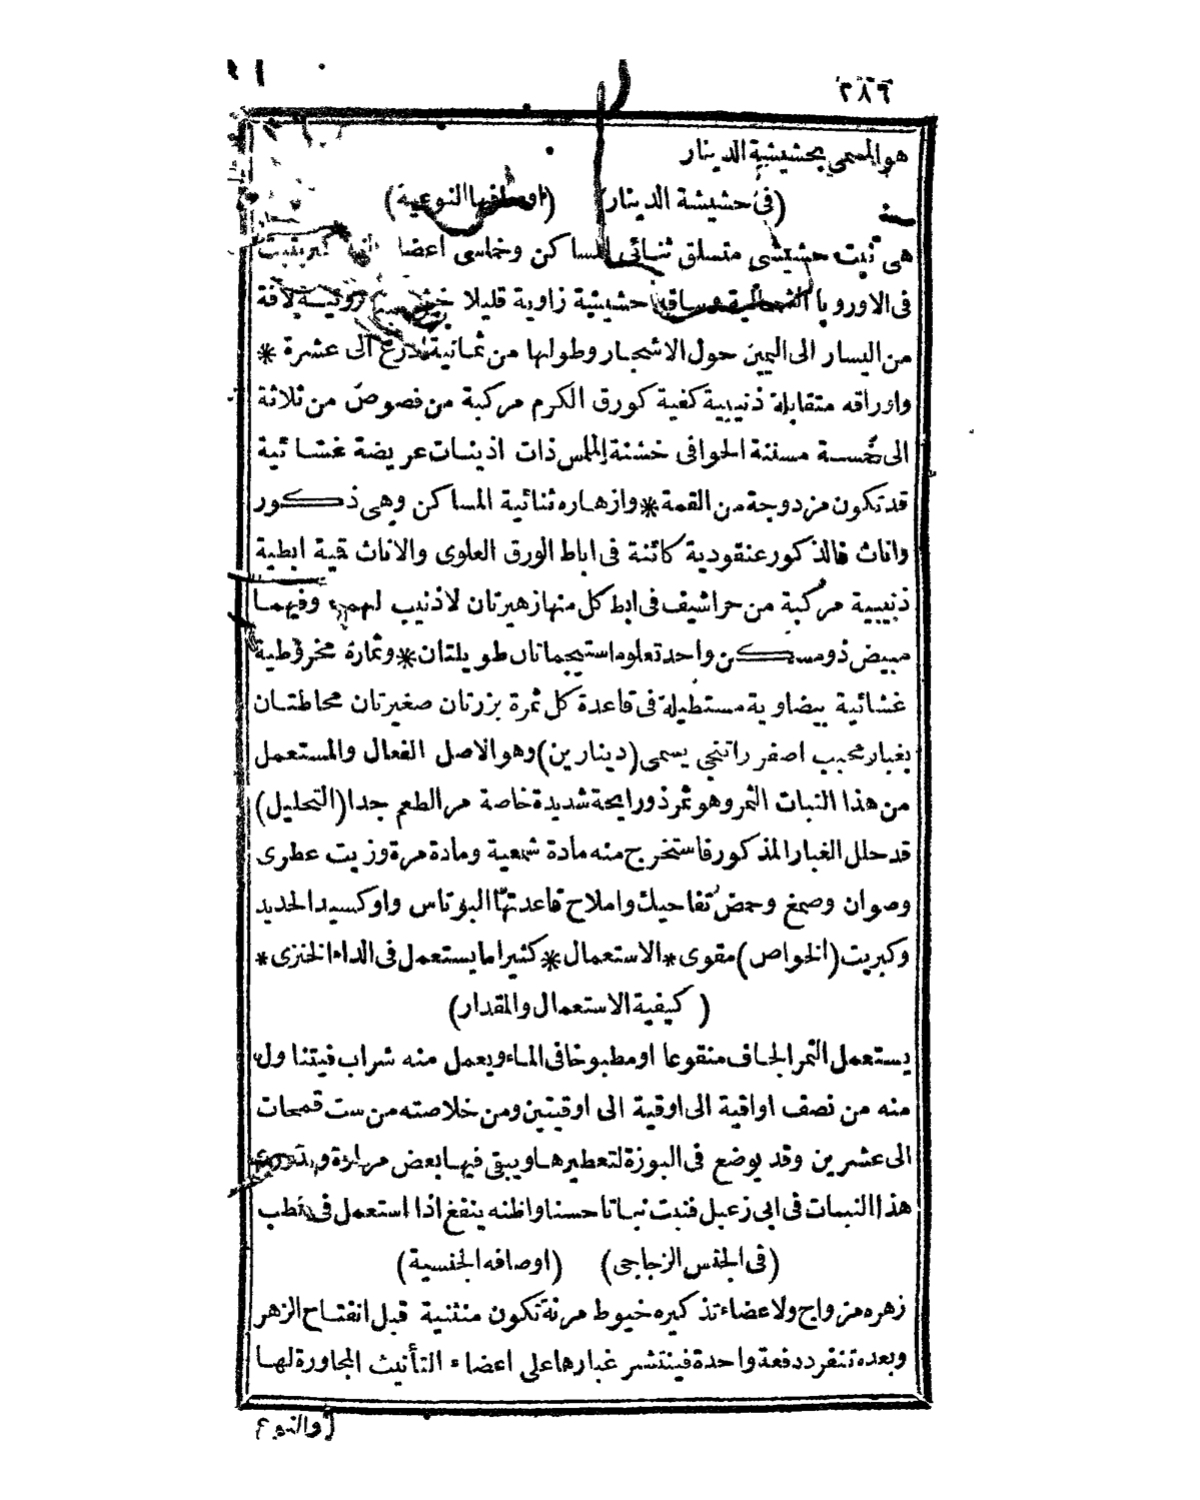 ٢٨٦
هو المسمى بحشيشة الدينار
(فى حشيشة الدينار) (اوصافها النوعية)
هى نبت حشيشى متسلق ثنائى المساكن وخماسى اعضا
فى الاوروبا الشمالية وساقه حشيشية زاوية قليلا لافة
من اليسار الى اليمين حول الاشجار وطولها من ثمانية اذرع الى عشرة *
واوراقه متقابلة ذنيبية كفية كورق الكرم مركبة من فصوص من ثلاثة
الى خمسة مسننة الحوافى خشنة الملمس ذات اذينات عريضة غشائية
قد تكون مزدوجة من القمة * وازهاره ثنائية المساكن وهى ذكور
واناث فالذكور عنقودية كائنة فى اباط الورق العلوى والاناث قمية ابطية
ذنيبية مركبة من حراشيف فى ابط كل منها زهيرتان لا ذنيب لهما وفيهما
مبيض ذو مسكن واحد تعلوه استيجماتان طويلتان * وثماره مخروطية
غشائية بيضاوية مستطيلة فى قاعدة كل ثمرة بزرتان صغيرتان محاطتان
بغبار محبب اصفر راتنجى يسمى (دينارين) وهو الاصل الفعال والمستعمل
من هذا النبات الثمر وهو ثمر ذو رايحة شديدة خاصة مر الطعم جدا (التحليل)
قد حلل الغبار المذكور فاستخرج منه مادة شمعية ومادة مرة وزيت عطرى
وصوان وصمغ وحمض تفاحيك واملاح قاعدتها البوتاس واوكسيد الحديد
وكبريت (الخواص) مقوى * الاستعمال * كثيرا ما يستعمل فى الداء الخنزى *
(كيفية الاستعمال والمقدار)
يستعمل الثمر الجاف منقوعا او مطبوخا فى الماء ويعمل منه شراب فيتناول
منه من نصف اواقية الى اوقية الى اوقيتين ومن خلاصته من ست قمحات
الى عشرين وقد يوضع فى البوزة لتعطيرها ويبقى فيها بعض مرارة و
هذا النبات فى ابى زعبل فنبت نباتا حسنا واظنه ينفع اذا استعمل فى
(فى الجنس الزجاجى) (اوصافه الجنسية)
زهره مزواج ولاعضاء تذكيره خيوط مرنة تكون منثنية قبل انفتاح الزهر
وبعده تنفرد دفعة واحدة فينتشر غبارها على اعضاء التأنيث المجاورة لها
والنوع